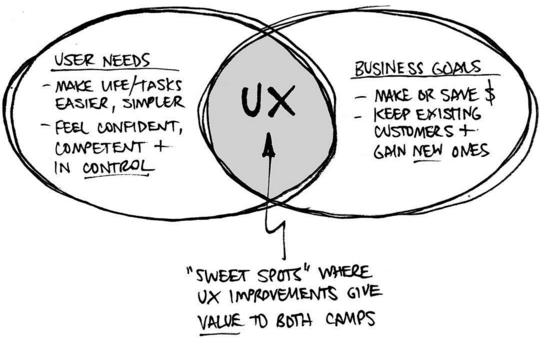 USER NEEDS
- MAKE LIFE/TASKS
EASIER, SIMPLER
- FEEL CONFIDENT,
COMPETENT +
IN CONTROL
UX
BUSINESS GOALS
- MAKE OR SAVE $
- KEEP EXISTING
CUSTOMERS +
GAIN NEW ONES
"SWEET SPOTS" WHERE
UX IMPROVEMENTS GIVE
VALUE TO BOTH CAMPS